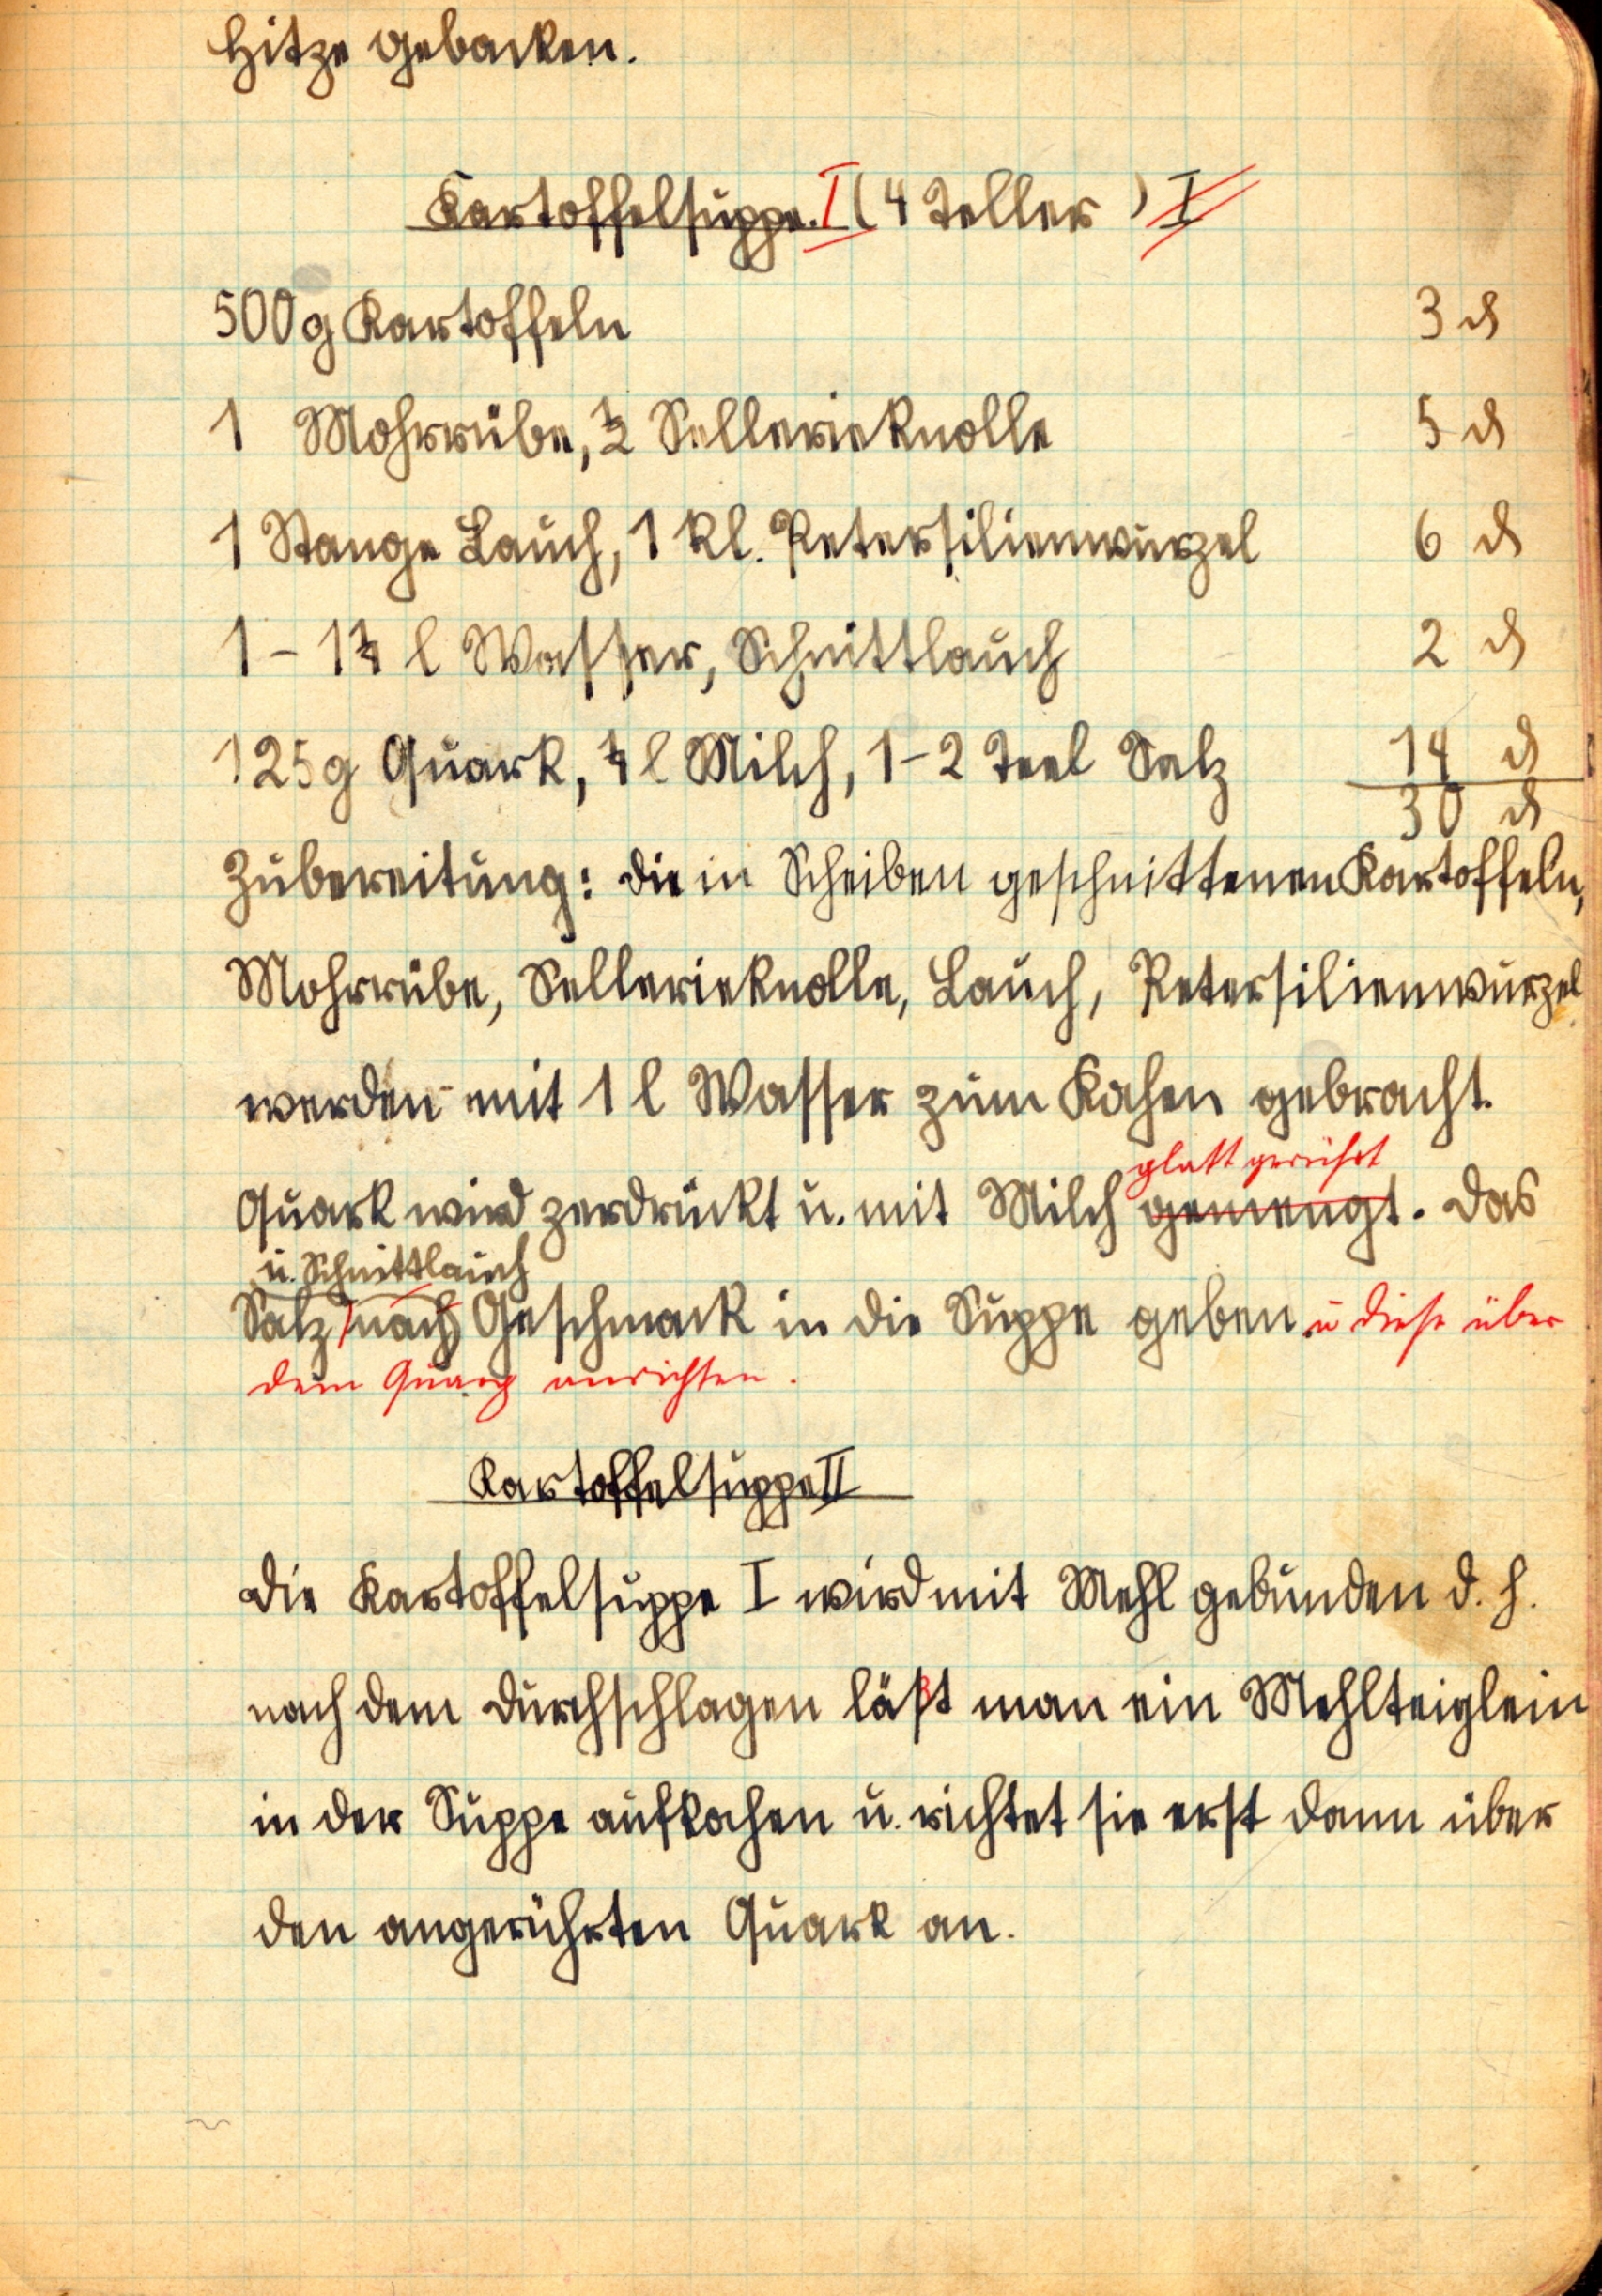 Hitze gebacken.
Kartoffelsuppe. I (4 Teller) I
500g Kartoffeln 3 ₰
1 Mohrrübe, ½ Sellerieknolle 5 ₰
1 Stange Lauch, 1 kl. Petersilienwurzel 6 ₰
1 – 1¼ l Wasser, Schnittlauch 2 ₰
125g Quark, ¼ l Milch, 1–2 Teel Salz 14 ₰
30 ₰
Zubereitung: die in Scheiben geschnittenen Kartoffeln,
Mohrrübe, Sellerieknolle, Lauch, Petersilienwurzel
werden mit 1 l Wasser zum Kochen gebracht.
glatt gerührt
Quark wird zerdrückt u. mit Milch gemengt. Das
u. Schnittlauch
Salz nach Geschmack in die Suppe geben u diese über
dem Quarg anrichten.
Kartoffelsuppe II
Die Kartoffelsuppe I wird mit Mehl gebunden d. h.
nach dem Durchschlagen läßt man ein Mehlteiglein
in der Suppe aufkochen u. richtet sie erst dann über
den angerührten Quark an.